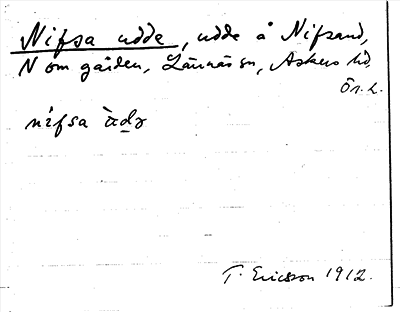 Nifsa udde, udde å Nifsand,
N om gården, Lännäs sn, Askers hd,
Ör. L.
nifsa
T. Ericsson 1912.